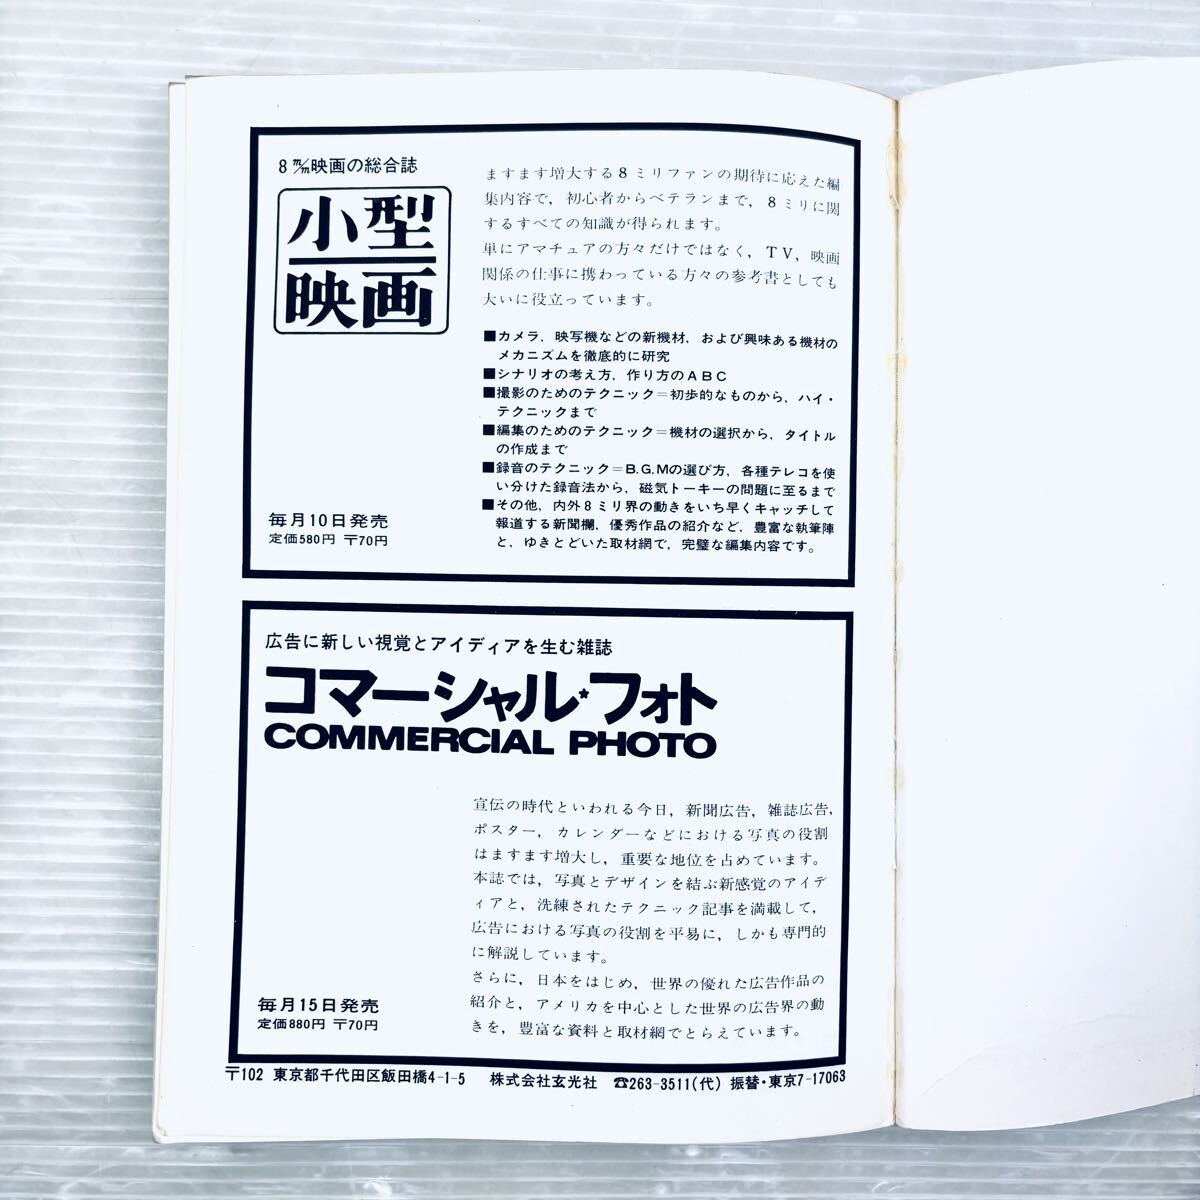 8㎜映画の総合誌
小型
映画
ますます増大する8ミリファンの期待に応えた編
集内容で，初心者からベテランまで，8ミリに関
するすべての知識が得られます。
単にアマチュアの方々だけではなく，TV，映画
関係の仕事に携わっている方々の参考書としても
大いに役立っています。
■カメラ，映写機などの新機材，および興味ある機材の
メカニズムを徹底的に研究
■シナリオの考え方，作り方のABC
■撮影のためのテクニック＝初歩的なものから，ハイ・
テクニックまで
■編集のためのテクニック＝機材の選択から，タイトル
の作成まで
■録音のテクニック＝B.G.Mの選び方，各種テレコを使
い分けた録音法から，磁気トーキーの問題に至るまで
■その他，内外8ミリ界の動きをいち早くキャッチして
報道する新聞欄，優秀作品の紹介など，豊富な執筆陣
と，ゆきとどいた取材網で，完璧な編集内容です。
毎月10日発売
定価580円 〒70円
広告に新しい視覚とアイディアを生む雑誌
コマーシャル★フォト
COMMERCIAL PHOTO
宣伝の時代といわれる今日，新聞広告，雑誌広告，
ポスター，カレンダーなどにおける写真の役割
はますます増大し，重要な地位を占めています。
本誌では，写真とデザインを結ぶ新感覚のアイデ
ィアと，洗練されたテクニック記事を満載して，
広告における写真の役割を平易に，しかも専門的
に解説しています。
さらに，日本をはじめ，世界の優れた広告作品の
紹介と，アメリカを中心とした世界の広告界の動
きを，豊富な資料と取材網でとらえています。
毎月15日発売
定価880円 〒70円
〒102 東京都千代田区飯田橋4-1-5 株式会社玄光社 ☎263-3511(代) 振替・東京7-17063